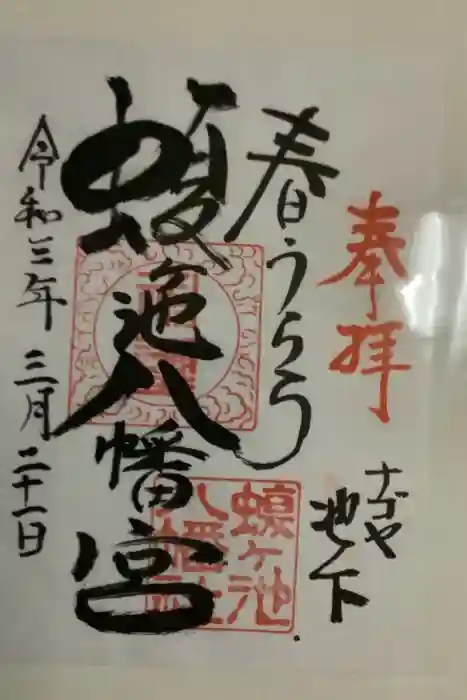 奉拝
ナゴヤ
池下
春うらら
蝮ヶ池八幡宮
令和三年 三月 二十一日
蝮ヶ池
八幡
社